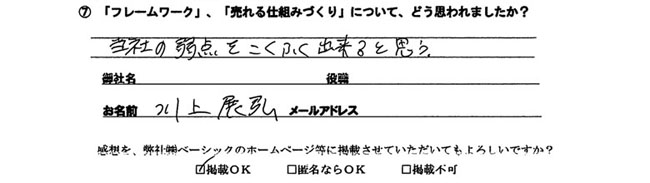 ⑦ 「フレームワーク」、「売れる仕組みづくり」について、どう思われましたか？
当社の弱点をこくふく出来ると思う。
御社名 役職
お名前 川上展弘 メールアドレス
感想を、弊社㈱ベーシックのホームページ等に掲載させていただいてもよろしいですか？
☑掲載OK □匿名ならOK □掲載不可